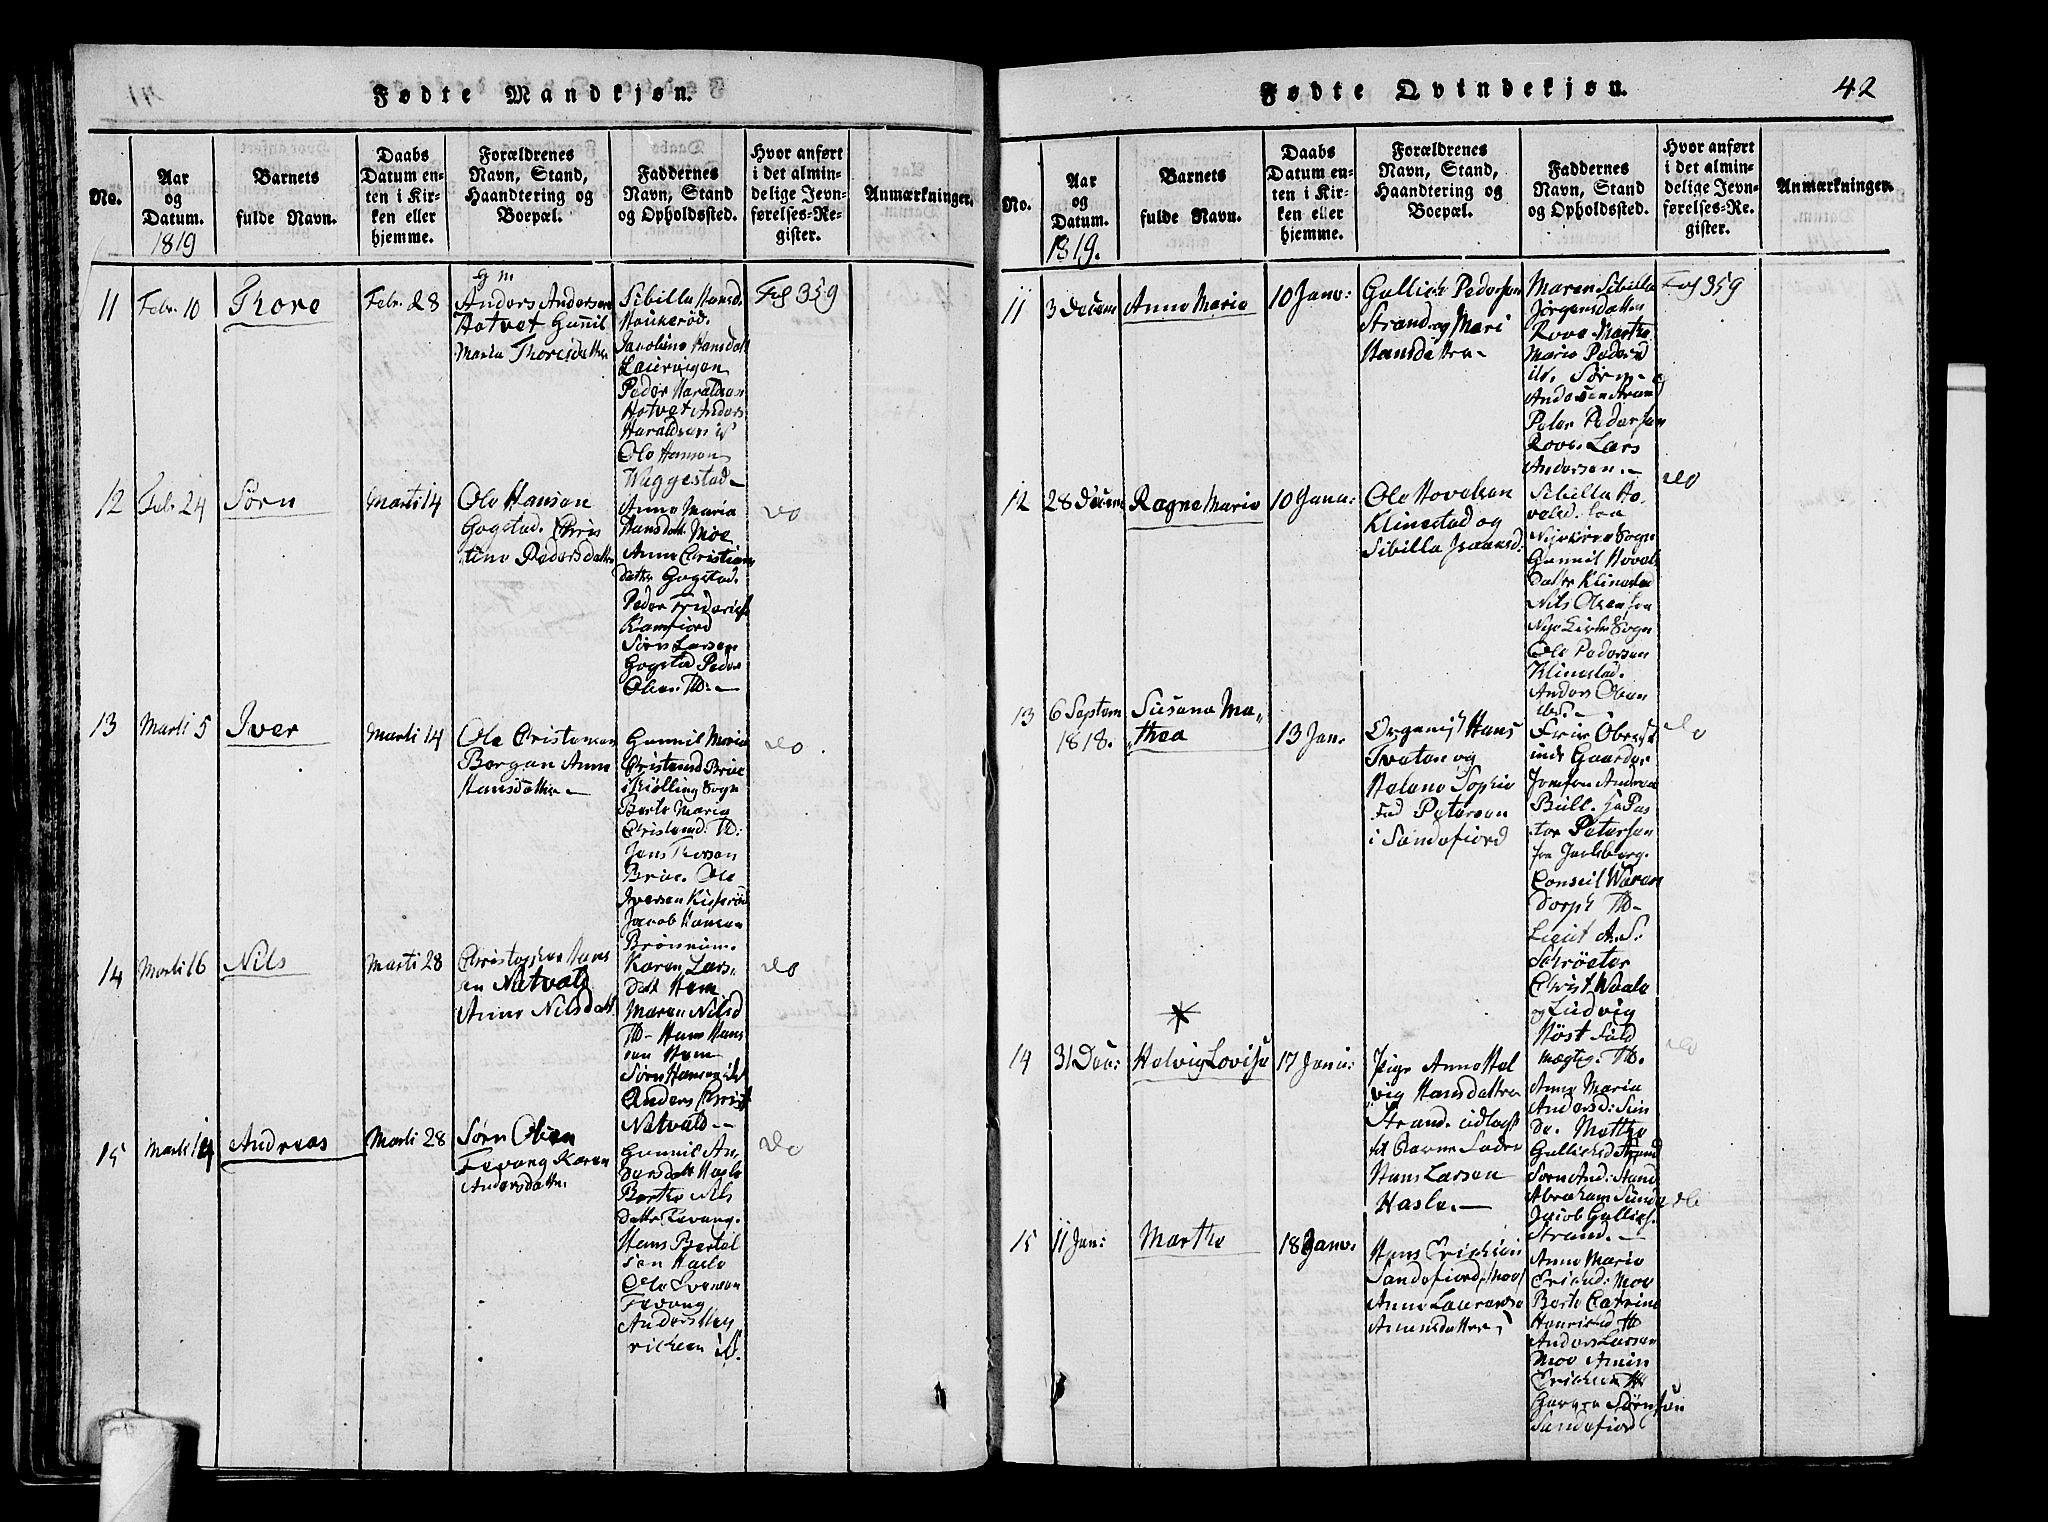 Fødte Mandkjøn.
No.
Aar
og
Datum.
1819
Barnets
fulde Navn.
Daabs
Datum en-
ten i Kir-
ken eller
hjemme.
Forældrenes
Navn, Stand,
Haandtering og
Boepæl.
Faddernes
Navn, Stand
og Opholdssted.
Hvor anført
i det almin-
delige Jevn-
førelses-Re-
gister.
Anmærkninger.
11
Febr. 10
Thore
Febr. 28
g m
Anders Andersen
Hotvet Gunnil
Maria Thoresdatter
Sibilla Hansd.
Haukerød.
Jacobine Hansdatt
Laiervigen
Peder Haraldsen
Hotvet Anders
Haraldsen
Ole Hansen
Wuggestad
Fol 359
12
Feb. 24
Sørn
Marti 14
Ole Hansen
Gogstad. Chris
tine Pedersdatter
Anne Maria
Hansdatt. Moe
Anne Christians
datter Gogstad.
Peder Friderichs
Kamfiord
Sørn Larsen
Gogstad Peder
Olsen. Ib:
do
13
Marti 5
Iver
Marti 14
Ole Cristensen
Bergan Anne
Hansdatter
Gunnil Maria
Cristensd Brue
i Kiølling Sogn
Berte Maria
Christensd: Ib:
Jens Thorsen
Brue. Ole
Iversen
Jacob Hansen
Brønnum.
do
14
Marti 16
Nils
Marti 28
Christopher Hans
en Natvald
Anne Nilsdatt
Karen Lars
datt Hem
Maren Nilsd
Ib- Hans Hans
sen Hem
Sørn Hansen
Anders Christ
Natvald
do
15
Marti 19
Andreas
Marti 28
Sørn Olsen
Fevang Karen
Andersdatter
Gunnil An
dersdatt Hasle
Berthe Nils
datter Fevang.
Hans Bertel
sen Hasle
Ole Iversen
Fevang
Anders Hen
richsen
do
Fødte Qvindekjøn.
42
No.
Aar
og
Datum.
1819.
Barnets
fulde Navn.
Daabs
Datum en-
ten i Kir-
ken eller
hjemme.
Forældrenes
Navn, Stand,
Haandtering og
Boepæl.
Faddernes
Navn, Stand
og Opholdsted.
Hvor anført
i det almin-
delige Jevn-
førelses-Re-
gister.
Anmærkninger.
11
3 Decem
Anne Marie
10 Janv:
Gullich Pedersen
Strand og Mari
Hansdatter
Maren Sibilla
Jørgensdatter
Rove Marthe
Marie Pedersd
ib. Sørn
Andersen Strand
Peter Pedersen
Rove. Lars
Andersen.
Fol 359
12
28 Decem
Ragne Marie
10 Janu:
Ole Hovelsen
Klinestad og
Sibilla Isaansd:
Sibilla Ho
velsd. fra
Nyekirke Sogn
Gunnil Hovels
datter Klinestad
Nils Olsen fra
Nye Kirke Sogn
Ole Pedersen
Klinestad.
Anders Olsen
do
13
6 Septem
1818.
Susana Ma,,
,,thea
13 Jan.
Organist Hans
Tvaten og
Helene Sophie
fød Petersen
i Sandefiord
Frue Oberst
inde Gaarder
Jomfru Andrea
Bull. Hr Pas
tor Petersen
fra Jarlsberg.
Conseil Waren
dorph Ib-
Lieut A. S:
Schrøeter
Christ Waale
og Ludvig
Høst Fuld
mægtig. Ib.
do
14
31 Dec:
*
Helvig Lovise
17 Janu:
Pige Anne Hel
vig Hansdatter
Strand. udlagt
til Barne Fader
Hans Larsen
Hasle.
Anne Maria
Andersd: Sun
de. Marthe
Gullichsd Strand
Sørn And: Strand
Abraham Sunde
Jacob Gullichs.
Strand.
do
15
11 Jan:
Marthe
18 Janv.
Hans Erichsen
Sandefiord /Moe/
Anne Laurense
Amunsdatter
Anne Marie
Erichsd: Moe
Berte Catrine
Henrichsd Ib
Anders Larsen
Moe Amun
Erichsen Ib
Gavern Sørensen
Sandefiord
do